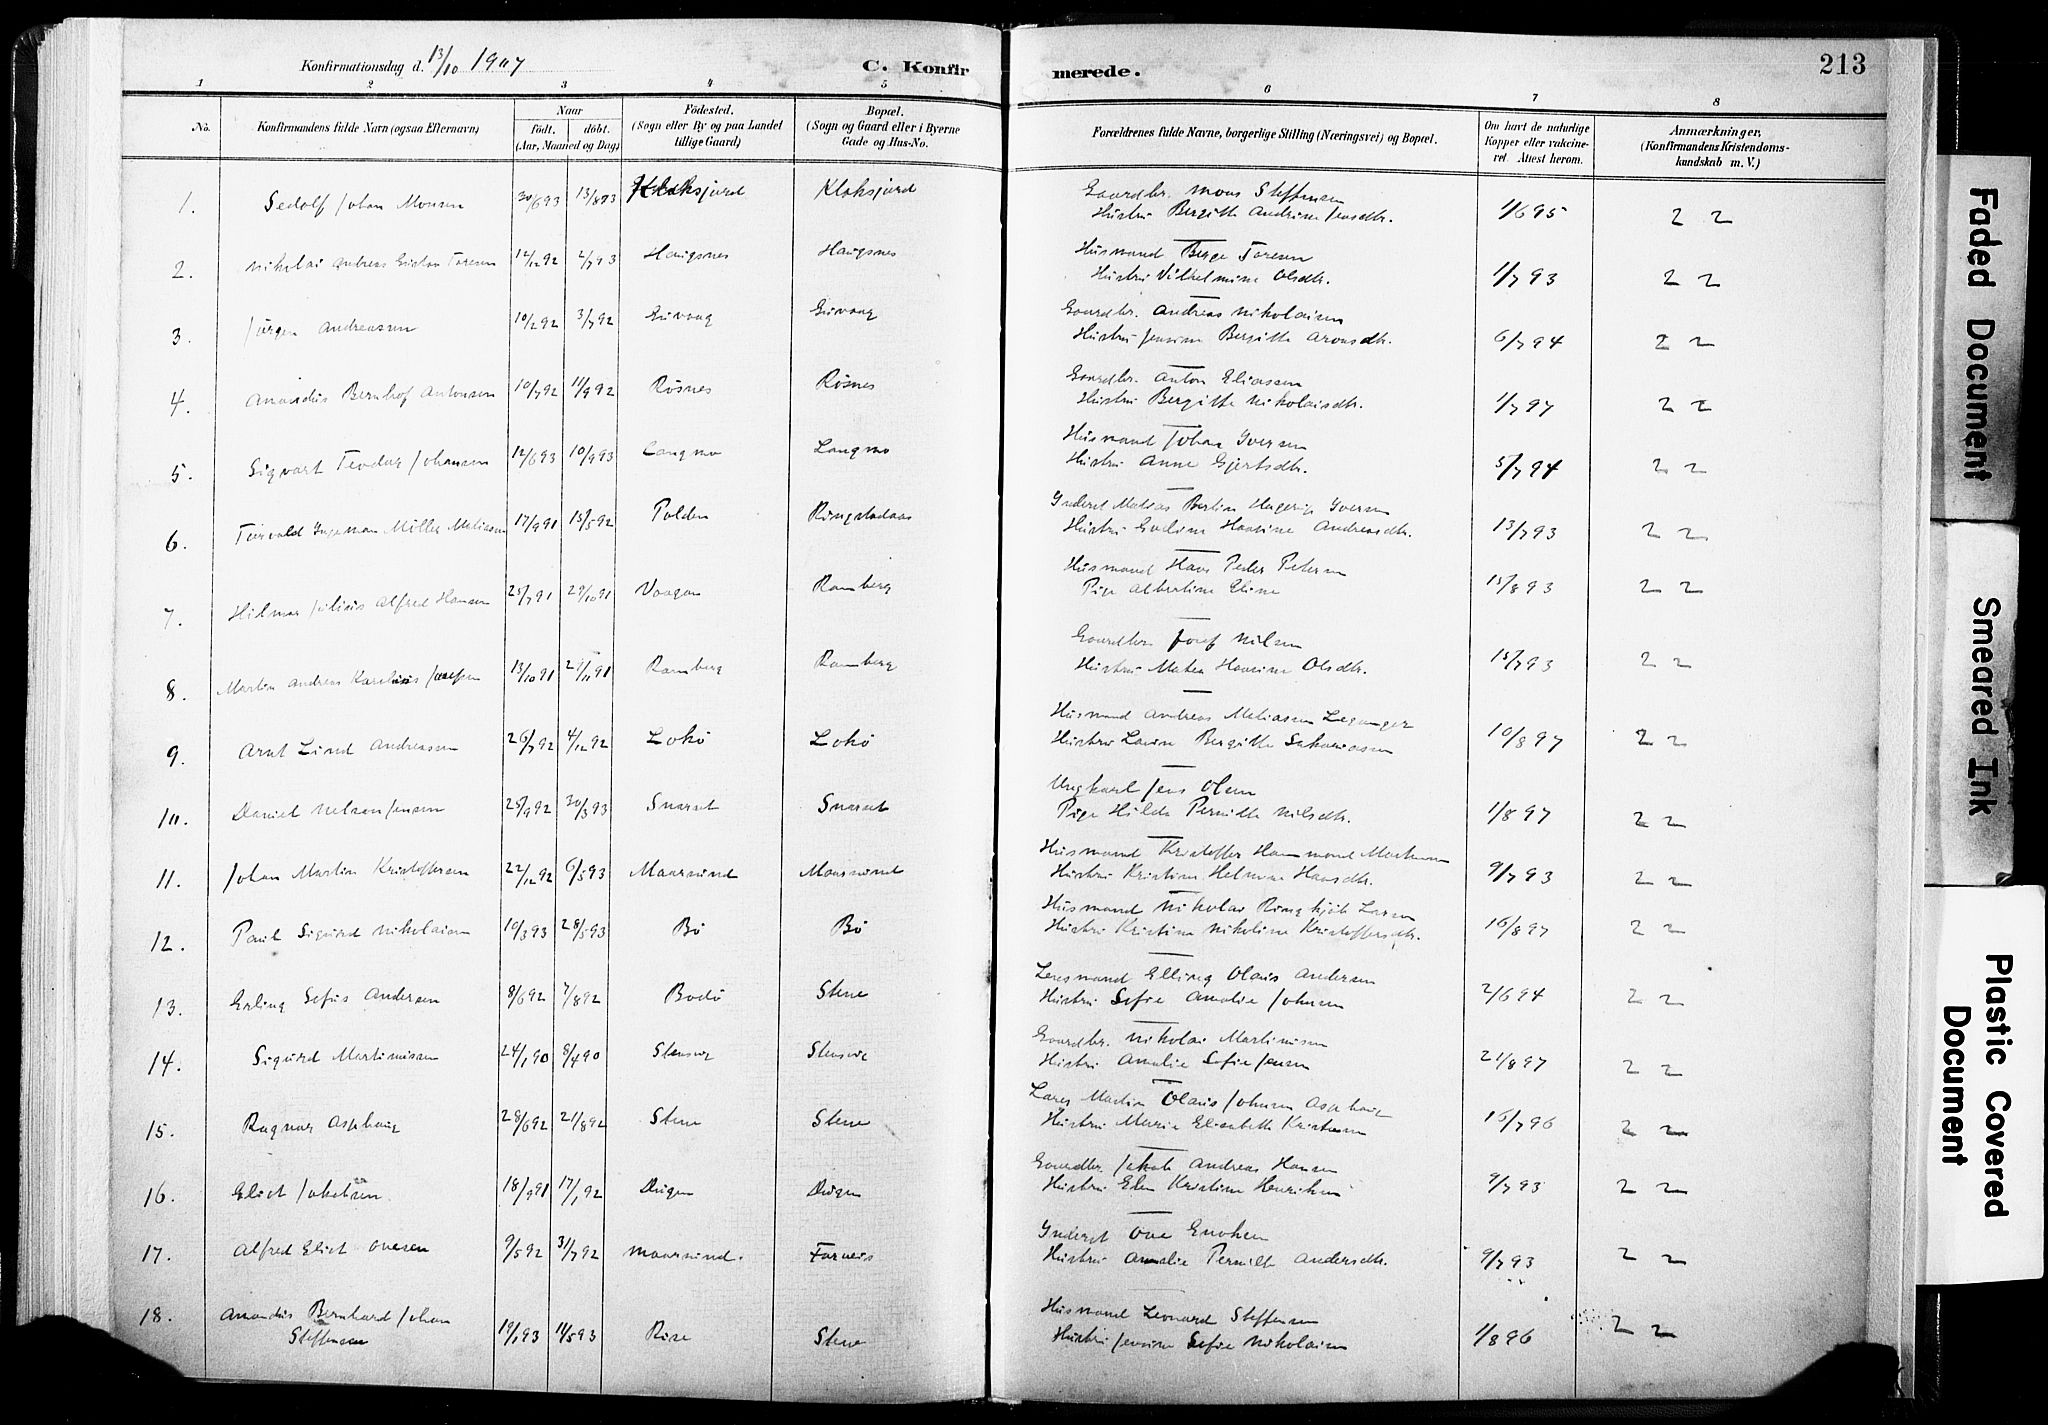 Konfirmationsdag d. 13/10 1907
C. Konfirmerede.
213
1 2 3 4 5 6 7 8
No.
Konfirmandens fulde Navn (ogsaa Efternavn)
Naar
födt. döbt.
(Aar, Maaned og Dag)
Födested.
(Sogn eller By og paa Landet
tillige Gaard)
Bopæl.
(Sogn og Gaard eller i Byerne
Gade og Hus-No.
Forældrenes fulde Navne, borgerlige Stilling (Næringsvei) og Bopæl.
Om havt de naturlige
Kopper eller vaccine-
ret. Attest herom.
Anmærkninger,
(Konfirmandens Kristendoms-
kundskab m. V.)
1. Sedolf Johan Monsen 30/6 93 13/8 93 Klaksjord Klaksjord Gaardbr. Mons Steffensen
Hustru Bergitte Andrine Jensdtr. 1/6 95 2 2
2. Nikolai Andreas Gustav Toresen 12/12 92 2/7 93 Haugsnes Haugsnes Husmand Berge Toresen
Hustru Vilhelmine Olsdtr. 1/7 93 2 2
3. Jörgen Andreassen 10/2 92 3/7 92 Guvaag Guvaag Gaardbr. Andreas Nikolaisen
Hustru Jensine Bergitte Aronsdtr. 6/7 94 2 2
4. Amandus Bernhof Antonsen 10/7 92 11/9 92 Røsnes Røsnes Gaardbr. Anton Eliassen
Hustru Bergitte Nikolaisdtr. 1/7 97 2 2
5. Sigvart Teodor Johansen 12/6 93 10/9 93 Langmo Langmo Husmand Johan Iversen
Hustru Anne Gjertsdtr. 5/7 94 2 2
6. Torvald Ingeman Müller Meliassen 17/9 91 15/5 92 Polden Ringstadaas Inderst Matias Bertin Iversen
Hustru Eveline Hansine Andreasdtr. 13/7 93 2 2
7. Hilmar Julius Alfred Hansen 25/7 91 29/10 91 Vaagan Ramberg Husmand Hans Peder Petersen
Pige Albertine Eline 15/8 93 2 2
8. Martin Andreas Karelius Josefsen 13/10 91 29/11 91 Ramberg Ramberg Gaardbr. Josef Nilsen
Hustru Matea Hansine Olsdtr. 15/7 93 2 2
9. Arnt Lind Andreassen 26/7 92 4/12 92 Lokø Lokø Husmand Andreas Meliassen Leganger
Hustru Lovise Bergitte Sakariassen 10/8 97 2 2
10. Daniel Nelson Jensen 25/9 92 30/3 93 Snarset Snarset Ungkarl Jens Olsen
Pige Hilda Pernitte Nilsdtr. 1/8 97 2 2
11. Johan Martin Kristoffersen 22/12 92 6/5 93 Maarsund Maarsund Husmand Kristoffer Hammond Martinsen
Hustru Kristine Helmine Hansdtr. 9/7 93 2 2
12. Paul Sigurd Nikolaisen 10/3 93 28/5 93 Bö Bö Husmand Nikolai Ringkjöb Larsen
Hustru Kristine Nikoline Kristoffersdtr. 16/8 97 2 2
13. Erling Sefus Andersen 8/6 92 7/8 92 Bodö Stene Lensmand Elling Olaus Andersen
Hustru Sofie Amalie Johnsen 2/6 94 2 2
14. Sigurd Martinussen 24/1 90 8/4 90 Stensvig Stensvig Gaardbr. Nikolai Martinussen
Hustru Amalie Sofie Jensen 21/8 97 2 2
15. Ragnar Asphaug 28/6 92 21/8 92 Stene Stene Martin Olaus Johnsen Asphaug
Hustru Marie Elisabeth Kristensen 16/7 96 2 2
16. Eliot Jakobsen 18/9 91 17/1 92 Dugen Dugen Gaardbr. Jakob Andreas Hansen
Hustru Elen Kristine Henriksen 9/7 93 2 2
17. Alfred Eliot Ovesen 9/5 92 31/7 92 Maarsund. Inderst Ove Enoksen
Hustru Amalie Pernille Andersdtr. 9/7 93 2 2
18. Amandus Bernhard Johan
Steffensen 19/1 93 11/5 93 Rise Stene Husmand Leonard Steffensen
Hustru Jensine Sofie Nikolaisen 1/8 96 2 2
Faded Document
Smeared Ink
Plastic Covered
Document